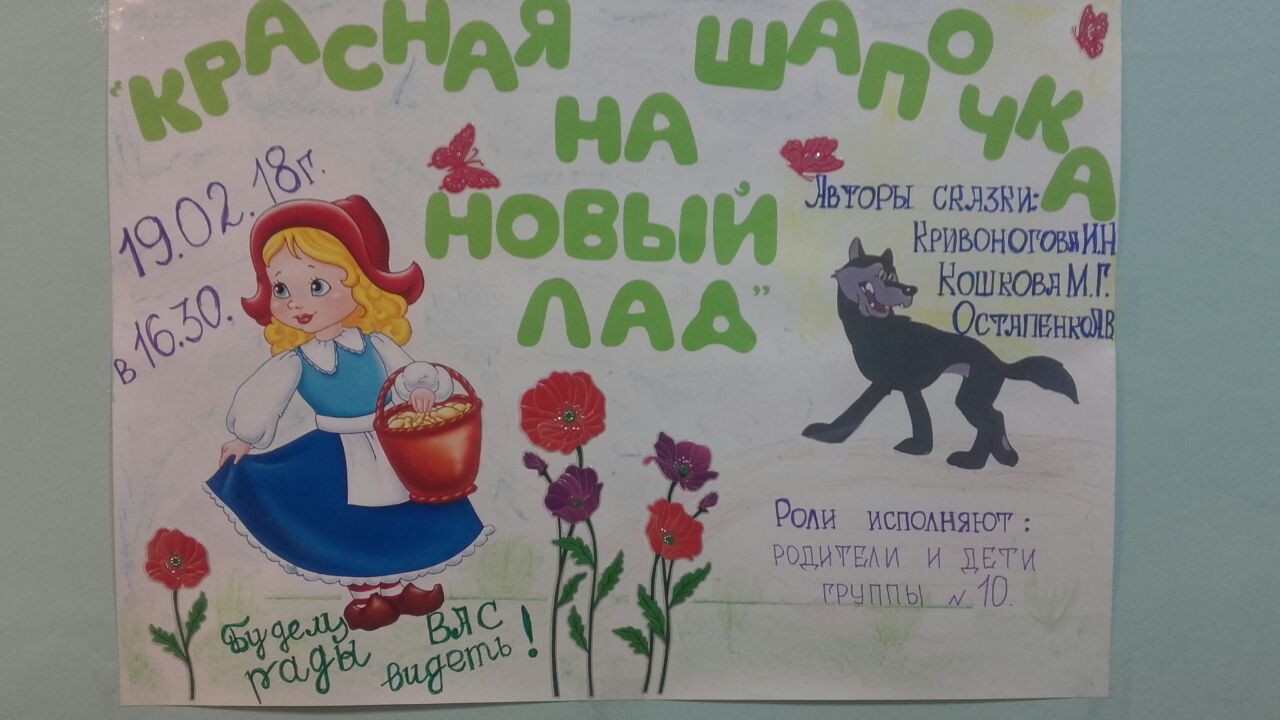 "КРАСНАЯ ШАПОЧКА
НА
НОВЫЙ
ЛАД"
19.02.18г.
в 16.30.
Авторы сказки:
Кривоногова И.Н
Кошкова М.Г.
Остапенко Я.В
Роли исполняют:
родители и дети
группы № 10.
Будем ВАС
рады видеть!